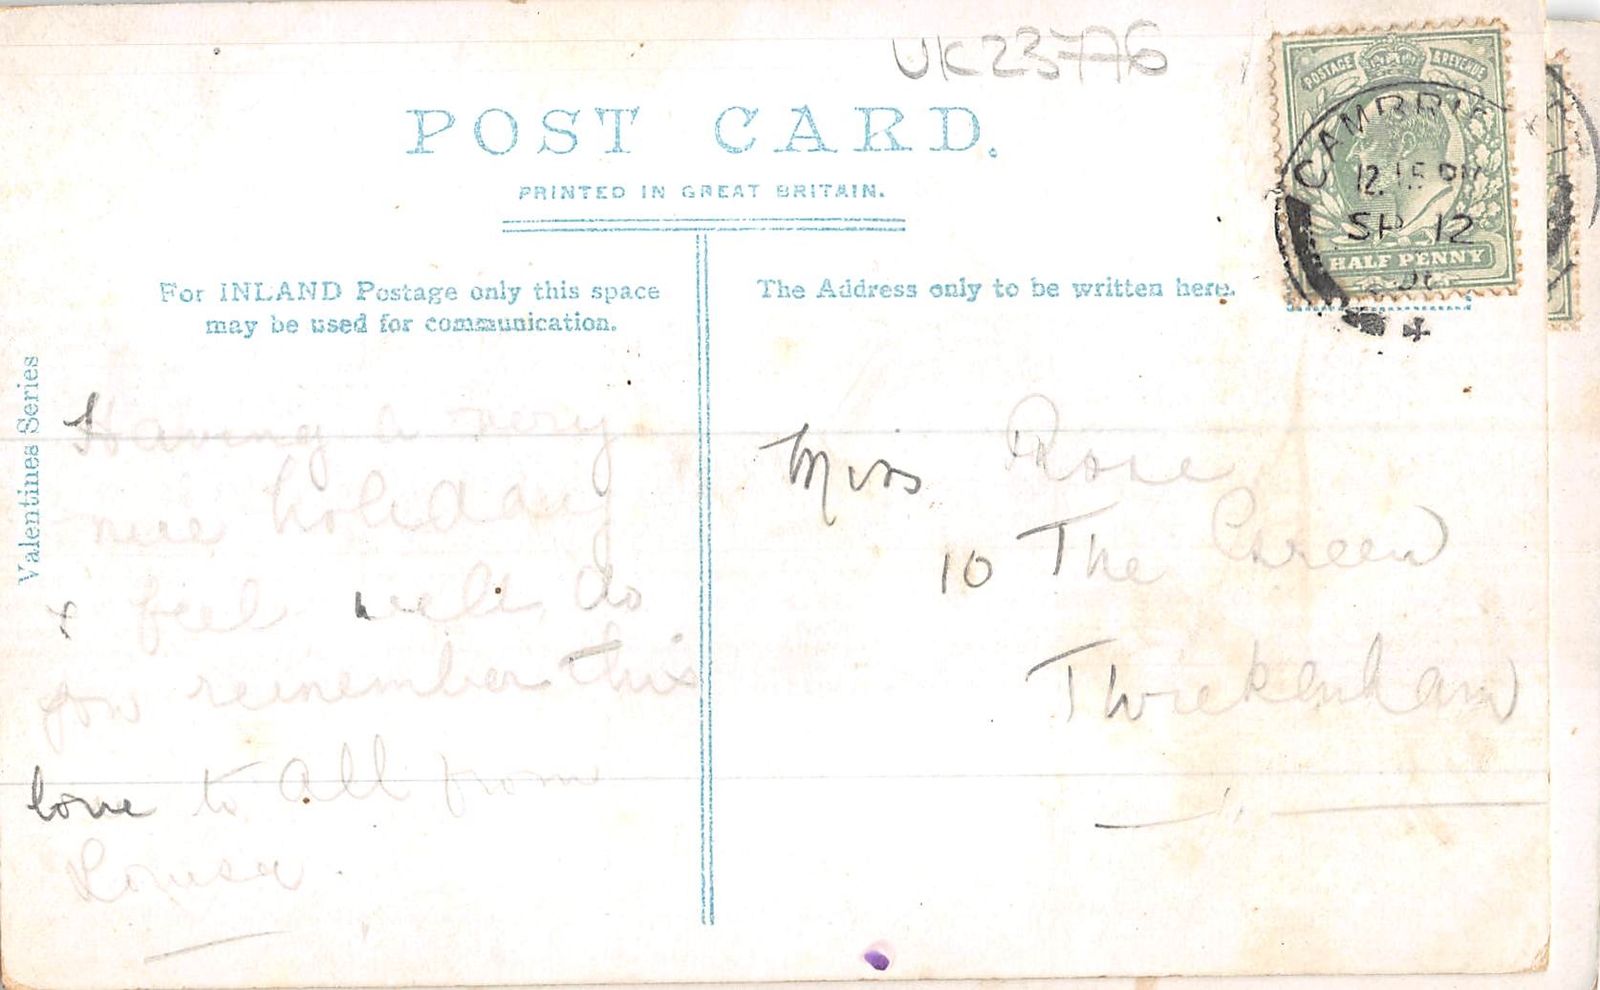 UK23776
POST CARD.
PRINTED IN GREAT BRITAIN.
POSTAGE & REVENUE
HALF PENNY
12.15 PM
SP 12
4
For INLAND Postage only this space
may be used for communication.
The Address only to be written here.
Valentines Series
Having a very
nice holiday
+ feel well do
you remember this
love to all from
Louisa.
Miss Rose
10 The Green
Twickenham